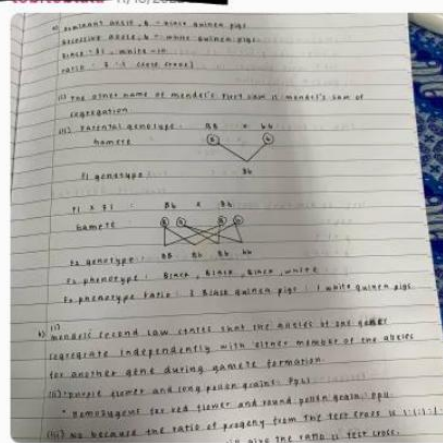 a) Dominant allele, B - black guinea pigs
Recessive allele, b - white guinea pigs
Black = 31, white = 10
ratio = 3 : 1
(ii) The other name of mendel's first law is mendel's law of
segregation
(iii) Parental genotype : BB x bb
Gamete B b
F1 genotype : Bb
F1 x F1 : Bb x Bb
Gamete : B b B b
F2 genotype : BB Bb Bb bb
F2 phenotype : Black, Black, Black, white
F2 phenotype ratio : 3 Black guinea pigs : 1 white guinea pigs
b) (i)
mendel's second law states that the alleles of one gene
segregate independently with either member of the alleles
for another gene during gamete formation.
(ii) • purple flower and long pollen grains : PpLl
• Homozygous for red flower and round pollen grain : ppll
(iii) no because the ratio of progeny from the test cross is 1:1:1:1
give the ratio is test cross.